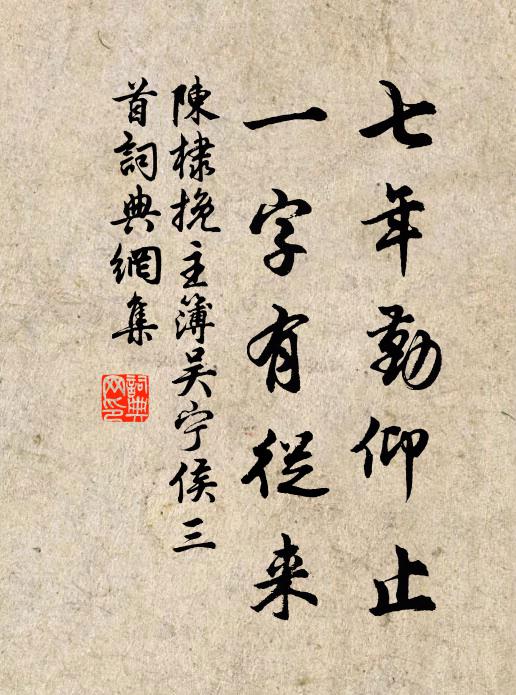 七年勤仰止
一字有從来
陳棣挽主簿吴宁侯三
首詞典網集
詞典网印